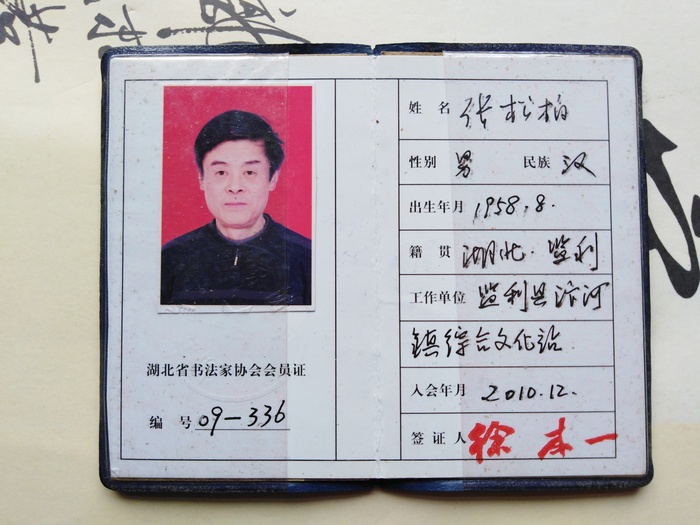 湖北省书法家协会会员证
编 号 09-336
姓 名 张松柏
性别 男 民族 汉
出生年月 1958.8.
籍 贯 湖北.监利
工作单位 监利县汴河
镇综合文化站
入会年月 2010.12.
签证人 徐本一